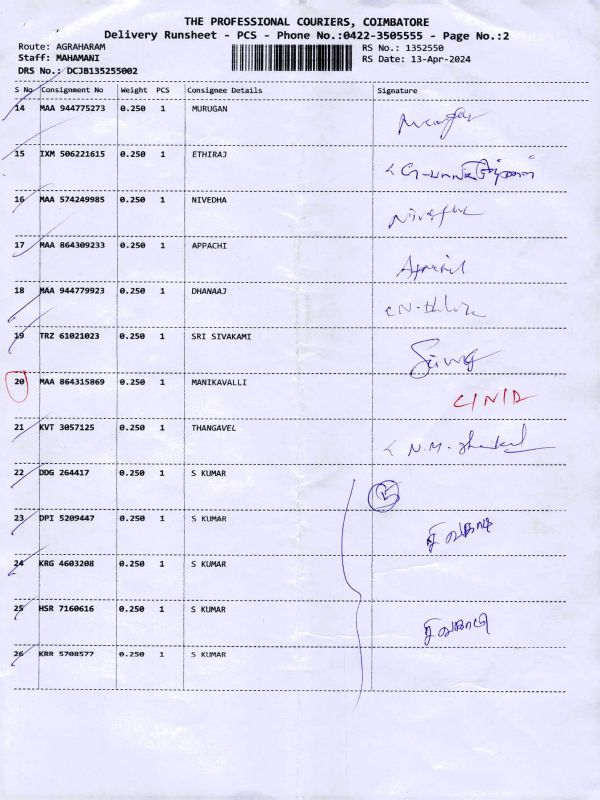 THE PROFESSIONAL COURIERS, COIMBATORE
Delivery Runsheet - PCS - Phone No.:0422-3505555 - Page No.:2
Route: AGRAHARAM
RS No.: 1352550
Staff: MAHAMANI
RS Date: 13-Apr-2024
DRS No.: DCJB135255002
S No Consignment No Weight PCS Consignee Details Signature
14 MAA 944775273 0.250 1 MURUGAN
15 IXM 506221615 0.250 1 ETHIRAJ
16 MAA 574249985 0.250 1 NIVEDHA
17 MAA 864309233 0.250 1 APPACHI
18 MAA 944779923 0.250 1 DHANAAJ
19 TRZ 61021023 0.250 1 SRI SIVAKAMI
20 MAA 864315869 0.250 1 MANIKAVALLI
21 KVT 3057125 0.250 1 THANGAVEL
22 DDG 264417 0.250 1 S KUMAR
23 DPI 5209447 0.250 1 S KUMAR
24 KRG 4603208 0.250 1 S KUMAR
25 HSR 7160616 0.250 1 S KUMAR
26 KRR 5708577 0.250 1 S KUMAR